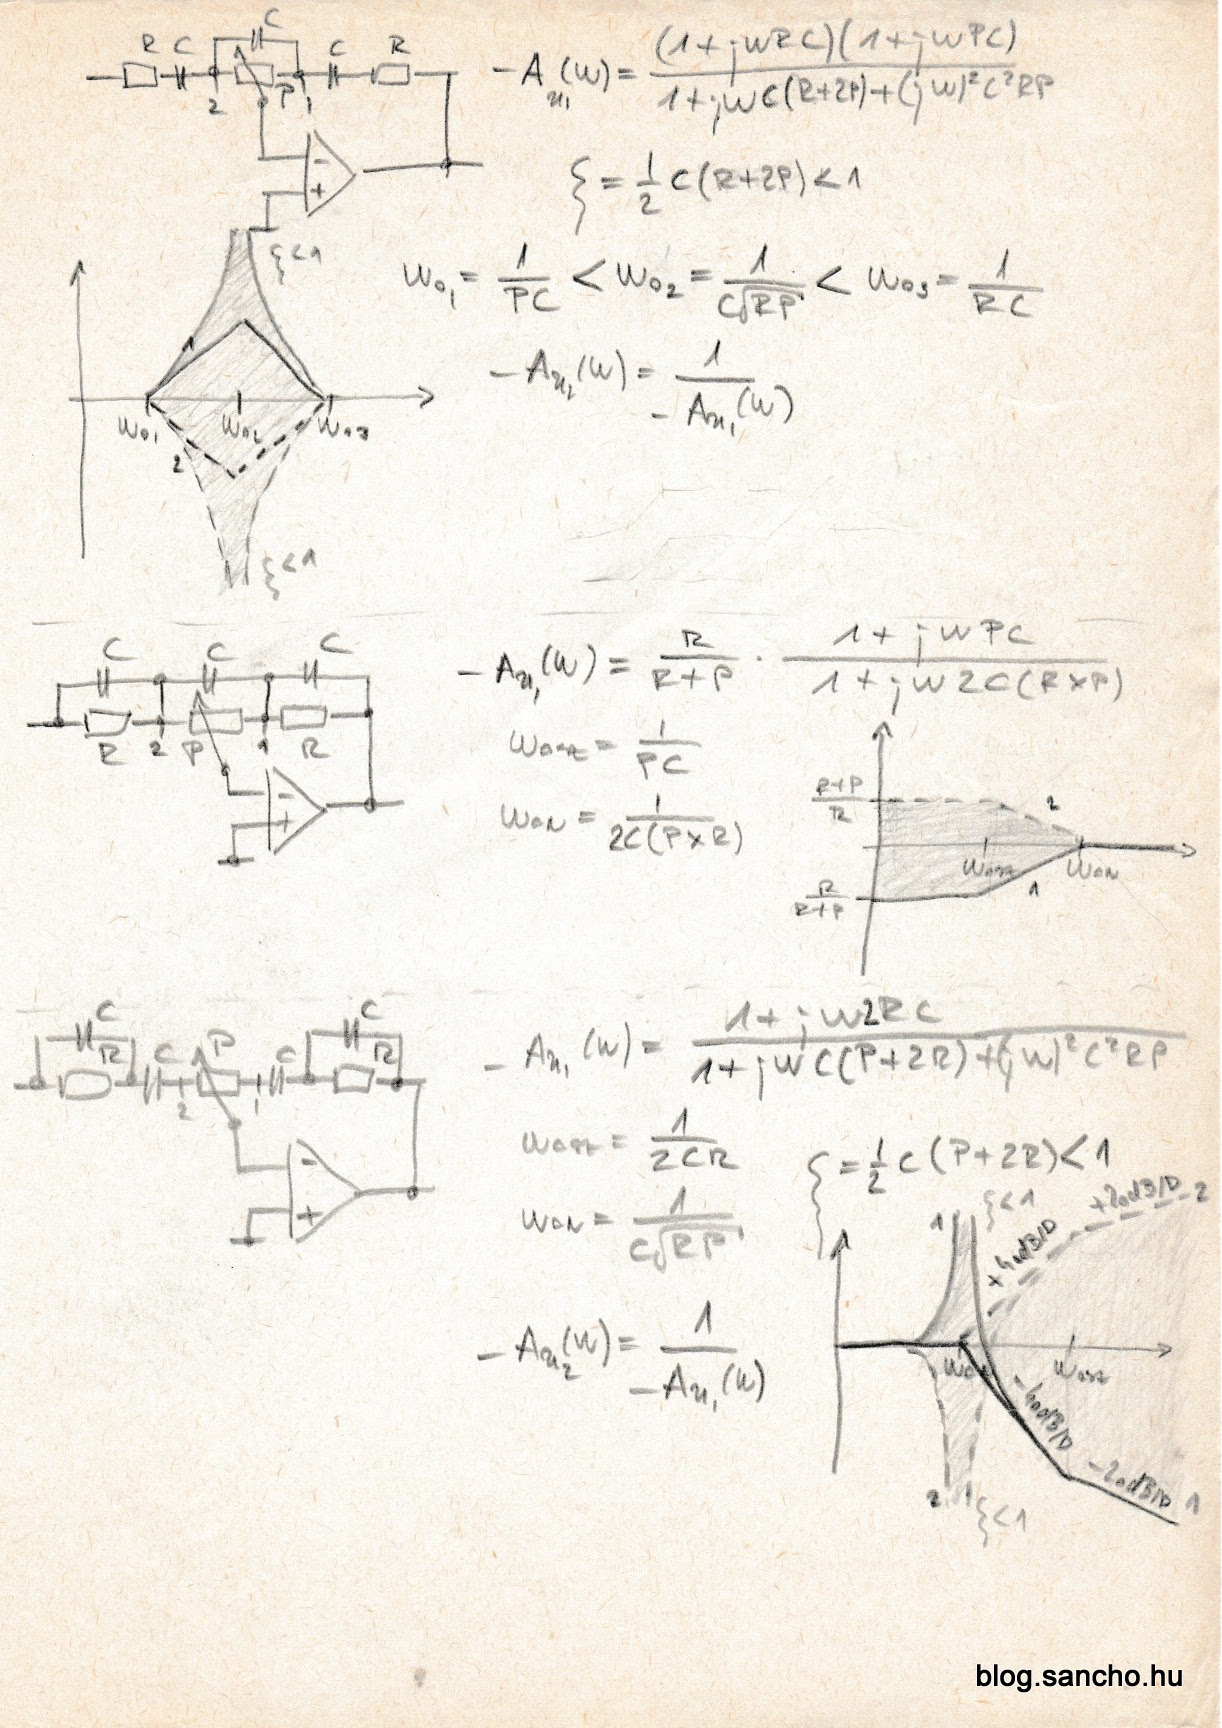 R C C P C R
2 1
- +
-A_{u1}(ω) = (1+jωRC)(1+jωPC) / 1+jωC(R+2P)+(jω)²C²RP
ξ = 1/2 C(R+2P) < 1
ξ<1
ω01 = 1/PC < ω02 = 1/C√RP < ω03 = 1/RC
-A_{u2}(ω) = 1 / -A_{u1}(ω)
1
ω01 ω02 ω03
2
ξ<1
C C C
R 2 P 1 R
- +
-A_{u1}(ω) = R/R+P · 1+jωPC / 1+jω2C(R×P)
ω0sz = 1/PC
ω0N = 1/2C(P×R)
R+P/R 2
ω0sz ω0N
R/R+P 1
C R C P C C R
2 1
- +
-A_{u1}(ω) = 1+jω2RC / 1+jωC(P+2R)+(jω)²C²RP
ω0sz = 1/2CR
ξ = 1/2 C(P+2R) < 1
ω0N = 1/C√RP
-A_{u2}(ω) = 1 / -A_{u1}(ω)
1 ξ<1 +20dB/D 2
+40dB/D
ω0N ω0sz
-40dB/D
-20dB/D 1
2 ξ<1
blog.sancho.hu